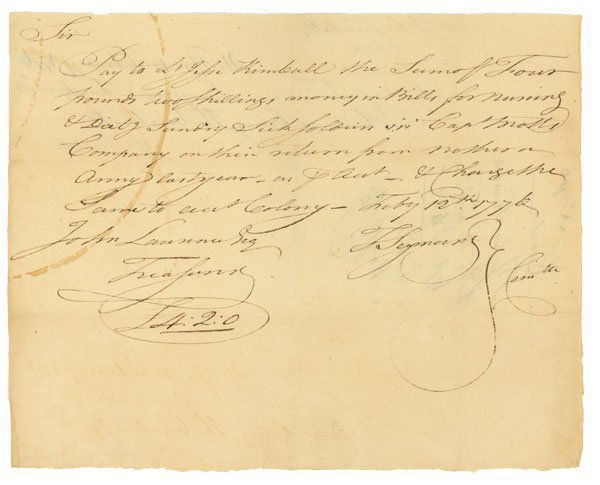 Sir
Pay to Lt Jesse Kimball the Sum of Four
pounds two Shillings money in Bills for nursing
& Diet of Sundry Sick Soldiers in Capt Motts
Company on their return from northern
Army last year – as pr Acct – & Charge the
Same to acct Colony – Feby 12th 1776
John Lawrence Esq
T Seymour
Comtte
Treasurer
£4:2:0